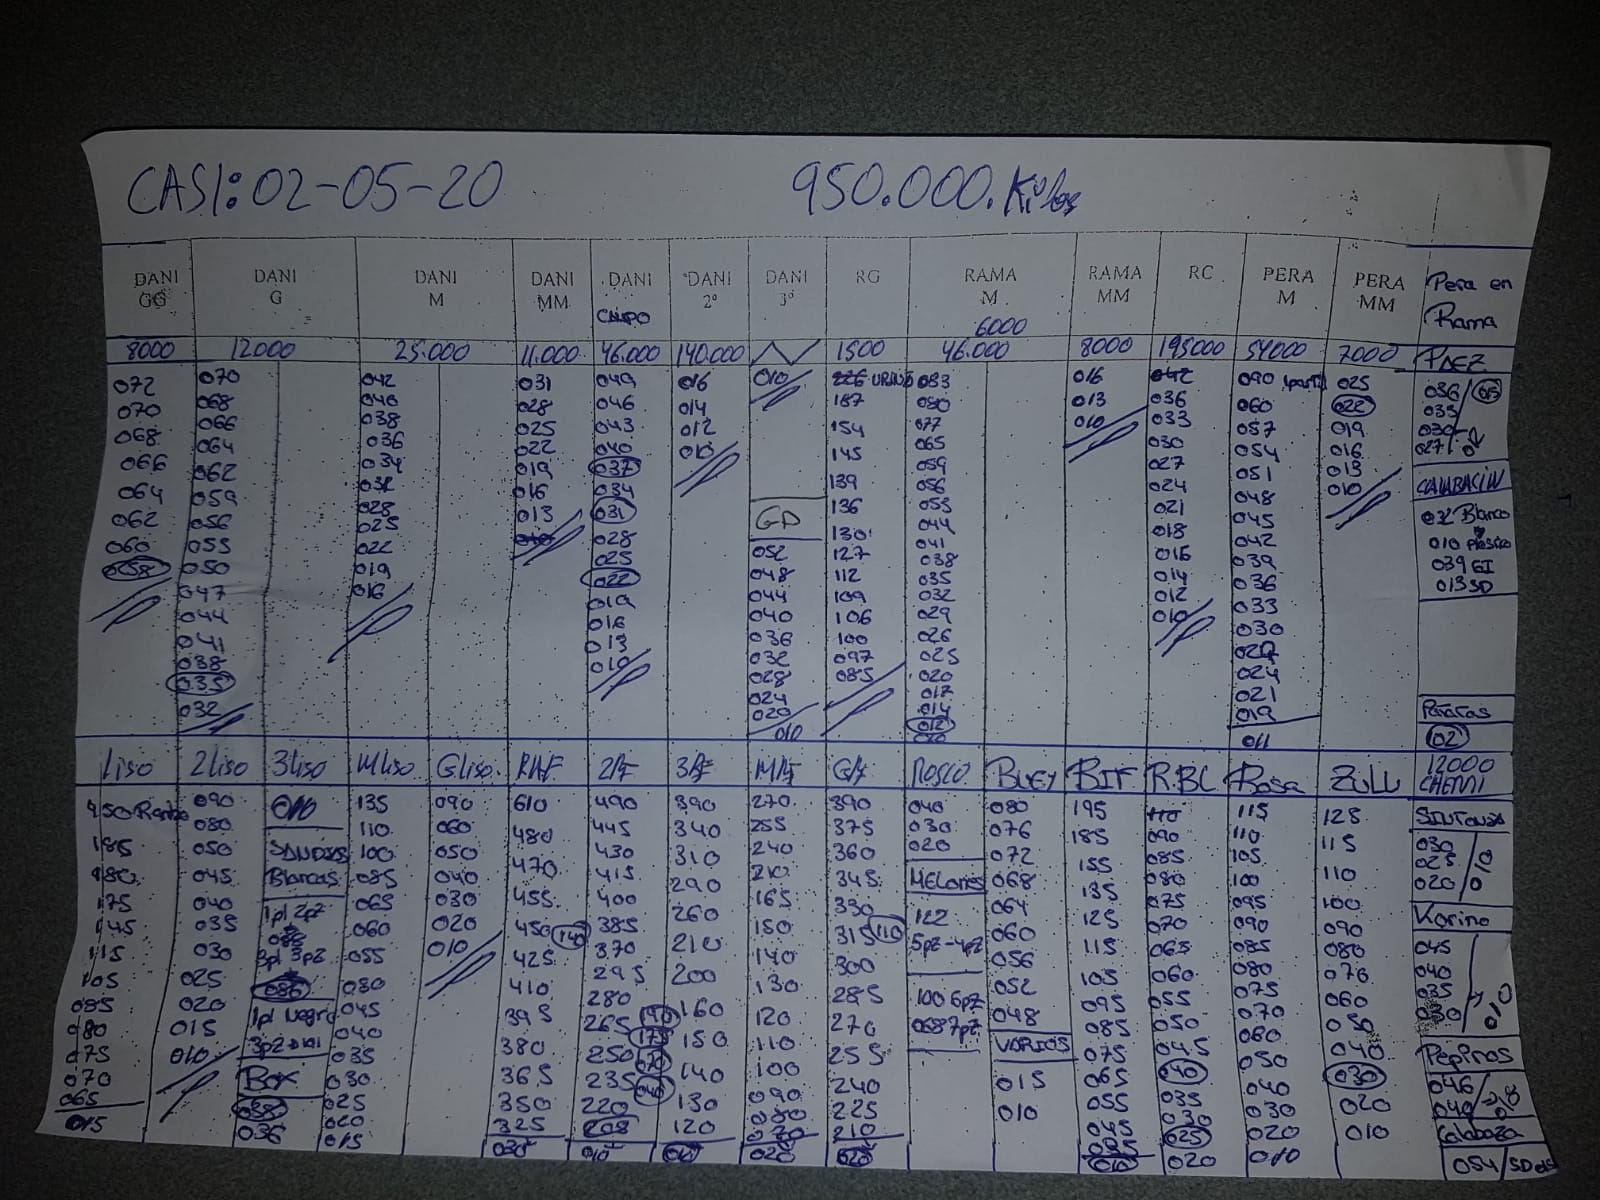 CASI: 02-05-20 950.000. Kilos
DANI GG DANI G DANI M DANI MM DANI CAMPO DANI 2º DANI 3º RG RAMA M 6000 RAMA MM RC PERA M PERA MM Pera en Rama
8000 12000 25.000 11.000 46.000 140.000 1500 46.000 8000 195000 54000 7000 PAEZ
072 070 068 066 064 062 060 058
070 068 066 064 062 059 056 053 050 047 044 041 038 035 032
042 040 038 036 034 031 028 025 022 019 016
031 028 025 022 019 016 013 010
049 046 043 040 037 034 031 028 025 022 019 016 013 010
016 014 012 010
010
GD
052 048 044 040 036 032 028 024 020 010
187 154 145 139 136 130 127 112 109 106 100 097 085
083 080 077 065 059 056 053 044 041 038 035 032 029 026 025 020 017 014 012
016 013 010
042 036 033 030 027 024 021 018 016 014 012 010
090 060 057 054 051 048 045 042 039 036 033 030 027 024 021 019 011
025 022 019 016 013 010
036 033 030 027
CALABACIN
Blanco
010
039 GI
013 SD
02
1 liso 2 liso 3 liso M liso G liso 2/F 3/F M/F G/F BUEY R.BC Bosa ZULU 12000
185 180 175 145 115 105 085 080 075 070 065 015
090 080 050 045 040 035 030 025 020 015 010
010
SANDIAS
Blancas
1pl 2pz
3pl 3pz
086
1pl Negra
BOX
036
135 110 100 085 065 060 055 050 045 040 035 030 025 020 015
090 060 050 040 030 020 010
610 480 470 455 450 140 425 410 395 380 365 350 325 030
490 445 430 415 400 385 370 295 280 265 250 235 220 010
390 340 310 290 260 210 200 160 150 140 130 120
270 255 240 210 165 150 140 130 120 110 100 090 080 020
390 375 360 345 330 315 110 300 285 270 255 240 225 210
040 030 020
MELONES
122
5pz-4pz
100 6pz
068 7pz
080 076 072 068 064 060 056 052 048
VARIOS
015
010
195 185 155 135 125 115 105 095 085 075 065 055 045
110 090 085 080 075 070 065 060 055 050 045 40 035 030 025 020
115 110 105 100 095 090 085 080 075 070 060 050 040 030 020 010
128 115 110 100 090 080 070 060 050 040 030 020 010
030 025 020 010
045 040 035 030 010
Pepinos
046 040
Calabaza
054